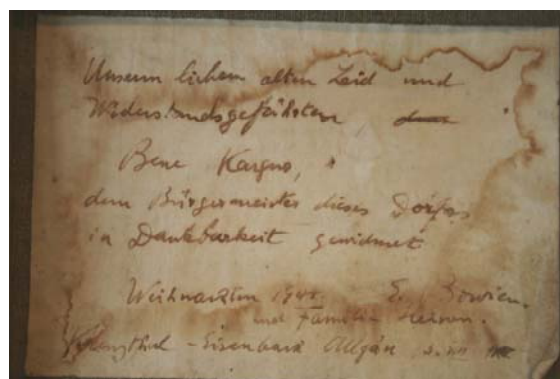 Unserm lieben alten Leid und
Widerstandsgefährten
Bene
dem Bürgermeister dieses Dorfes
in Dankbarkeit gewidmet
Weihnachten E. Bowien.
und Familie Heinen.
Kreuzthal - Eisenbach Allgäu